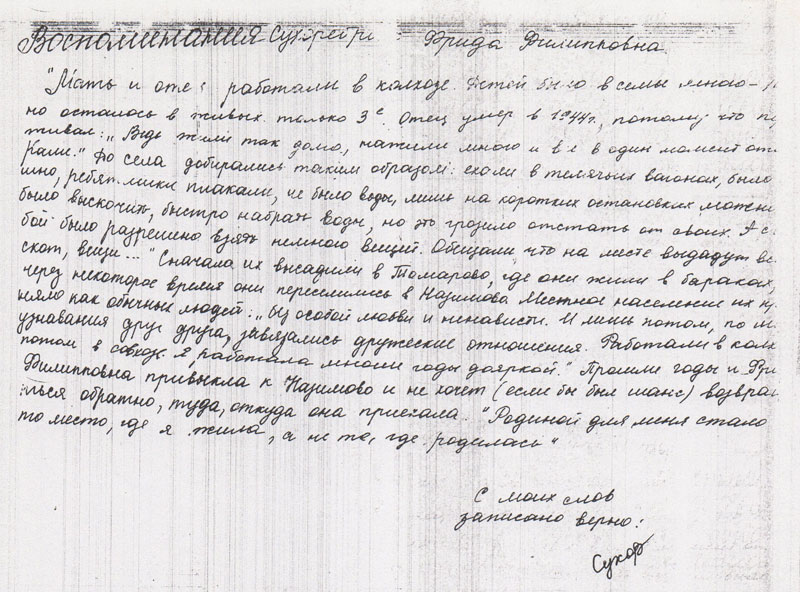 Воспоминания Сухорейри Фрида Филипповна.
"Мать и оте работали в колхозе. Детей было в семье много-
но осталось в живых только 3е. Отец умер в 1944г., потому что пе
живал: „Ведь жили так долго, нажили много и все в один момент от
кали." До села добирались таким образом: ехали в телячьих вагонах, было
шно, ребятишки плакали, не было воды, лишь на коротких остановках можно
было выскочить, быстро набрать воды, но это грозило отстать от своих. А с
бой было разрешено взять немного вещей. Обещали, что на месте выдадут вс
скот, вещи..." Сначала их высадили в Томарово, где они жили в бараках,
через некоторое время они переселились в Назимова. Местное население их пр
няло как обычных людей: „без особой любви и ненависти. И лишь потом, по м
узнавания друг друга, завязались дружеские отношения. Работали в колх
потом в совхозе. Я работала многи годы дояркой." Прошли годы и Фри
Филипповна привыкла к Назимово и не хочет (если бы был шанс) возвра
ться обратно, туда, откуда она приехала. "Родиной для меня стало
то место, где я жила, а не то, где родилась"
С моих слов
записано верно:
Сухор